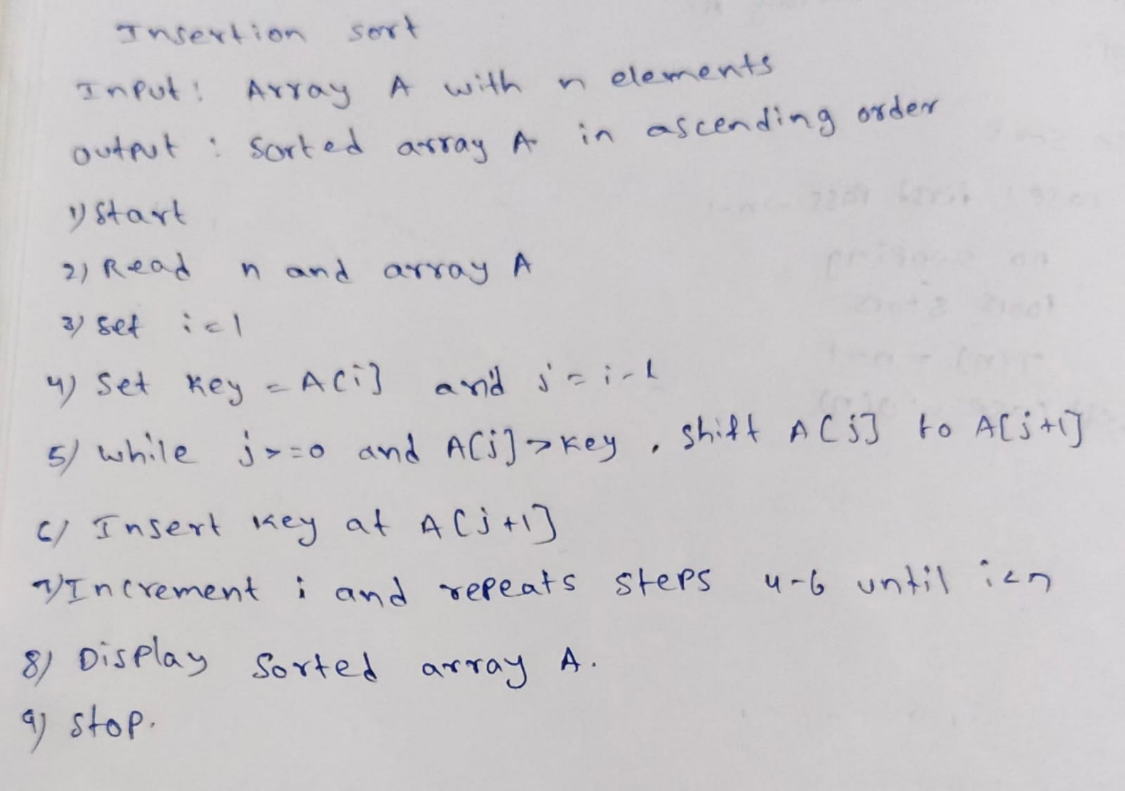 Insertion sort
Input: Array A with n elements
output : Sorted array A in ascending order
1) Start
2) Read n and array A
3) Set i=1
4) Set key = A[i] and j=i-1
5) while j>=0 and A[j]>key, shift A[j] to A[j+1]
6) Insert key at A[j+1]
7) Increment i and repeats steps 4-6 until i<n
8) Display Sorted array A.
9) Stop.